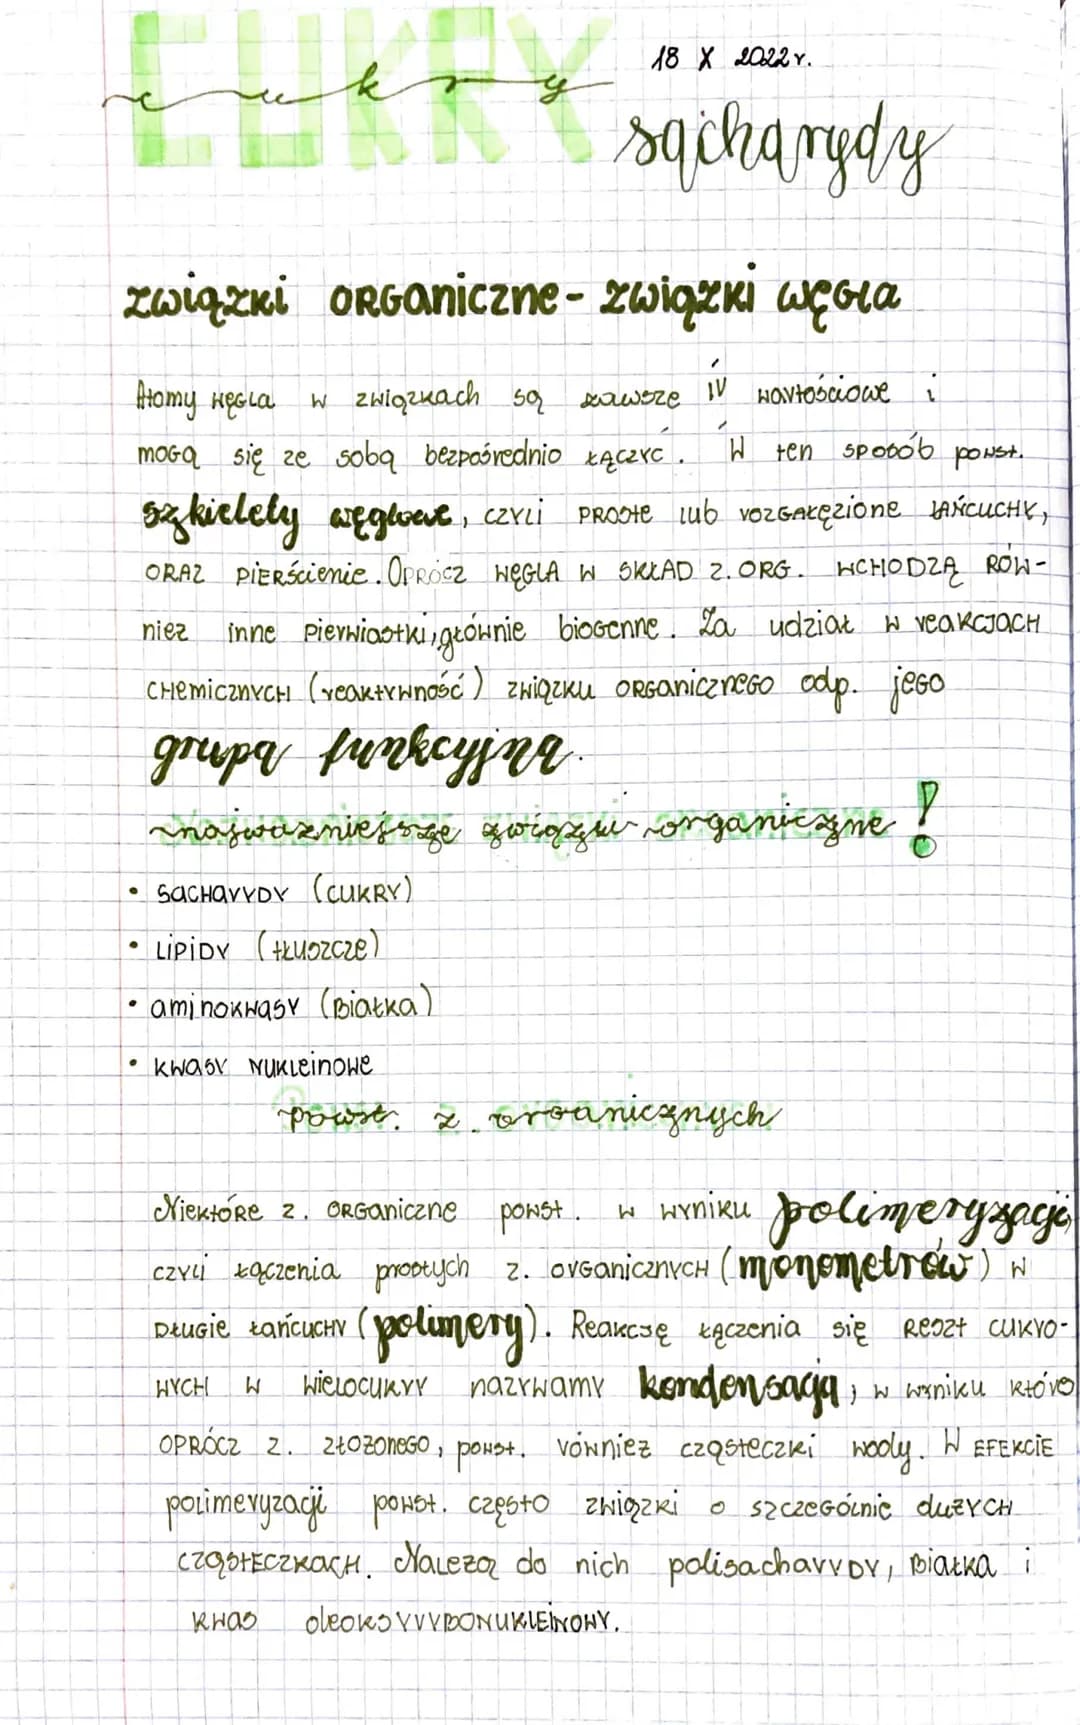 CUKRY
cukry
18 X 2022 r.
sacharydy
związki organiczne - związki węgla
Atomy węgla w związkach są zawsze IV wartościowe i
mogą się ze sobą bezpośrednio łączyć. W ten sposób powst.
szkielety węglowe, czyli proste lub rozgałęzione łańcuchy,
oraz pierścienie. Oprócz węgla w skład z. org. wchodzą rów-
nież inne pierwiastki, głównie biogenne. Za udział w reakcjach
chemicznych (reaktywność) związku organicznego odp. jego
grupa funkcyjna.
najważniejsze związki organiczne!
• sacharydy (cukry)
• lipidy (tłuszcze)
• aminokwasy (białka)
• kwasy nukleinowe
powst. z. organicznych
Niektóre z. organiczne powst. w wyniku polimeryzacji,
czyli łączenia prostych z. organicznych (monometrów) w
długie łańcuchy (polimery). Reakcję łączenia się reszt cukro-
wych w wielocukry nazywamy kondensacją, w wyniku któro
oprócz z. złożonego, powst. również cząsteczki wody. W efekcie
polimeryzacji powst. często związki o szczególnie dużych
cząsteczkach. Należą do nich polisacharydy, białka i
kwas deoksyrybonukleinowy.